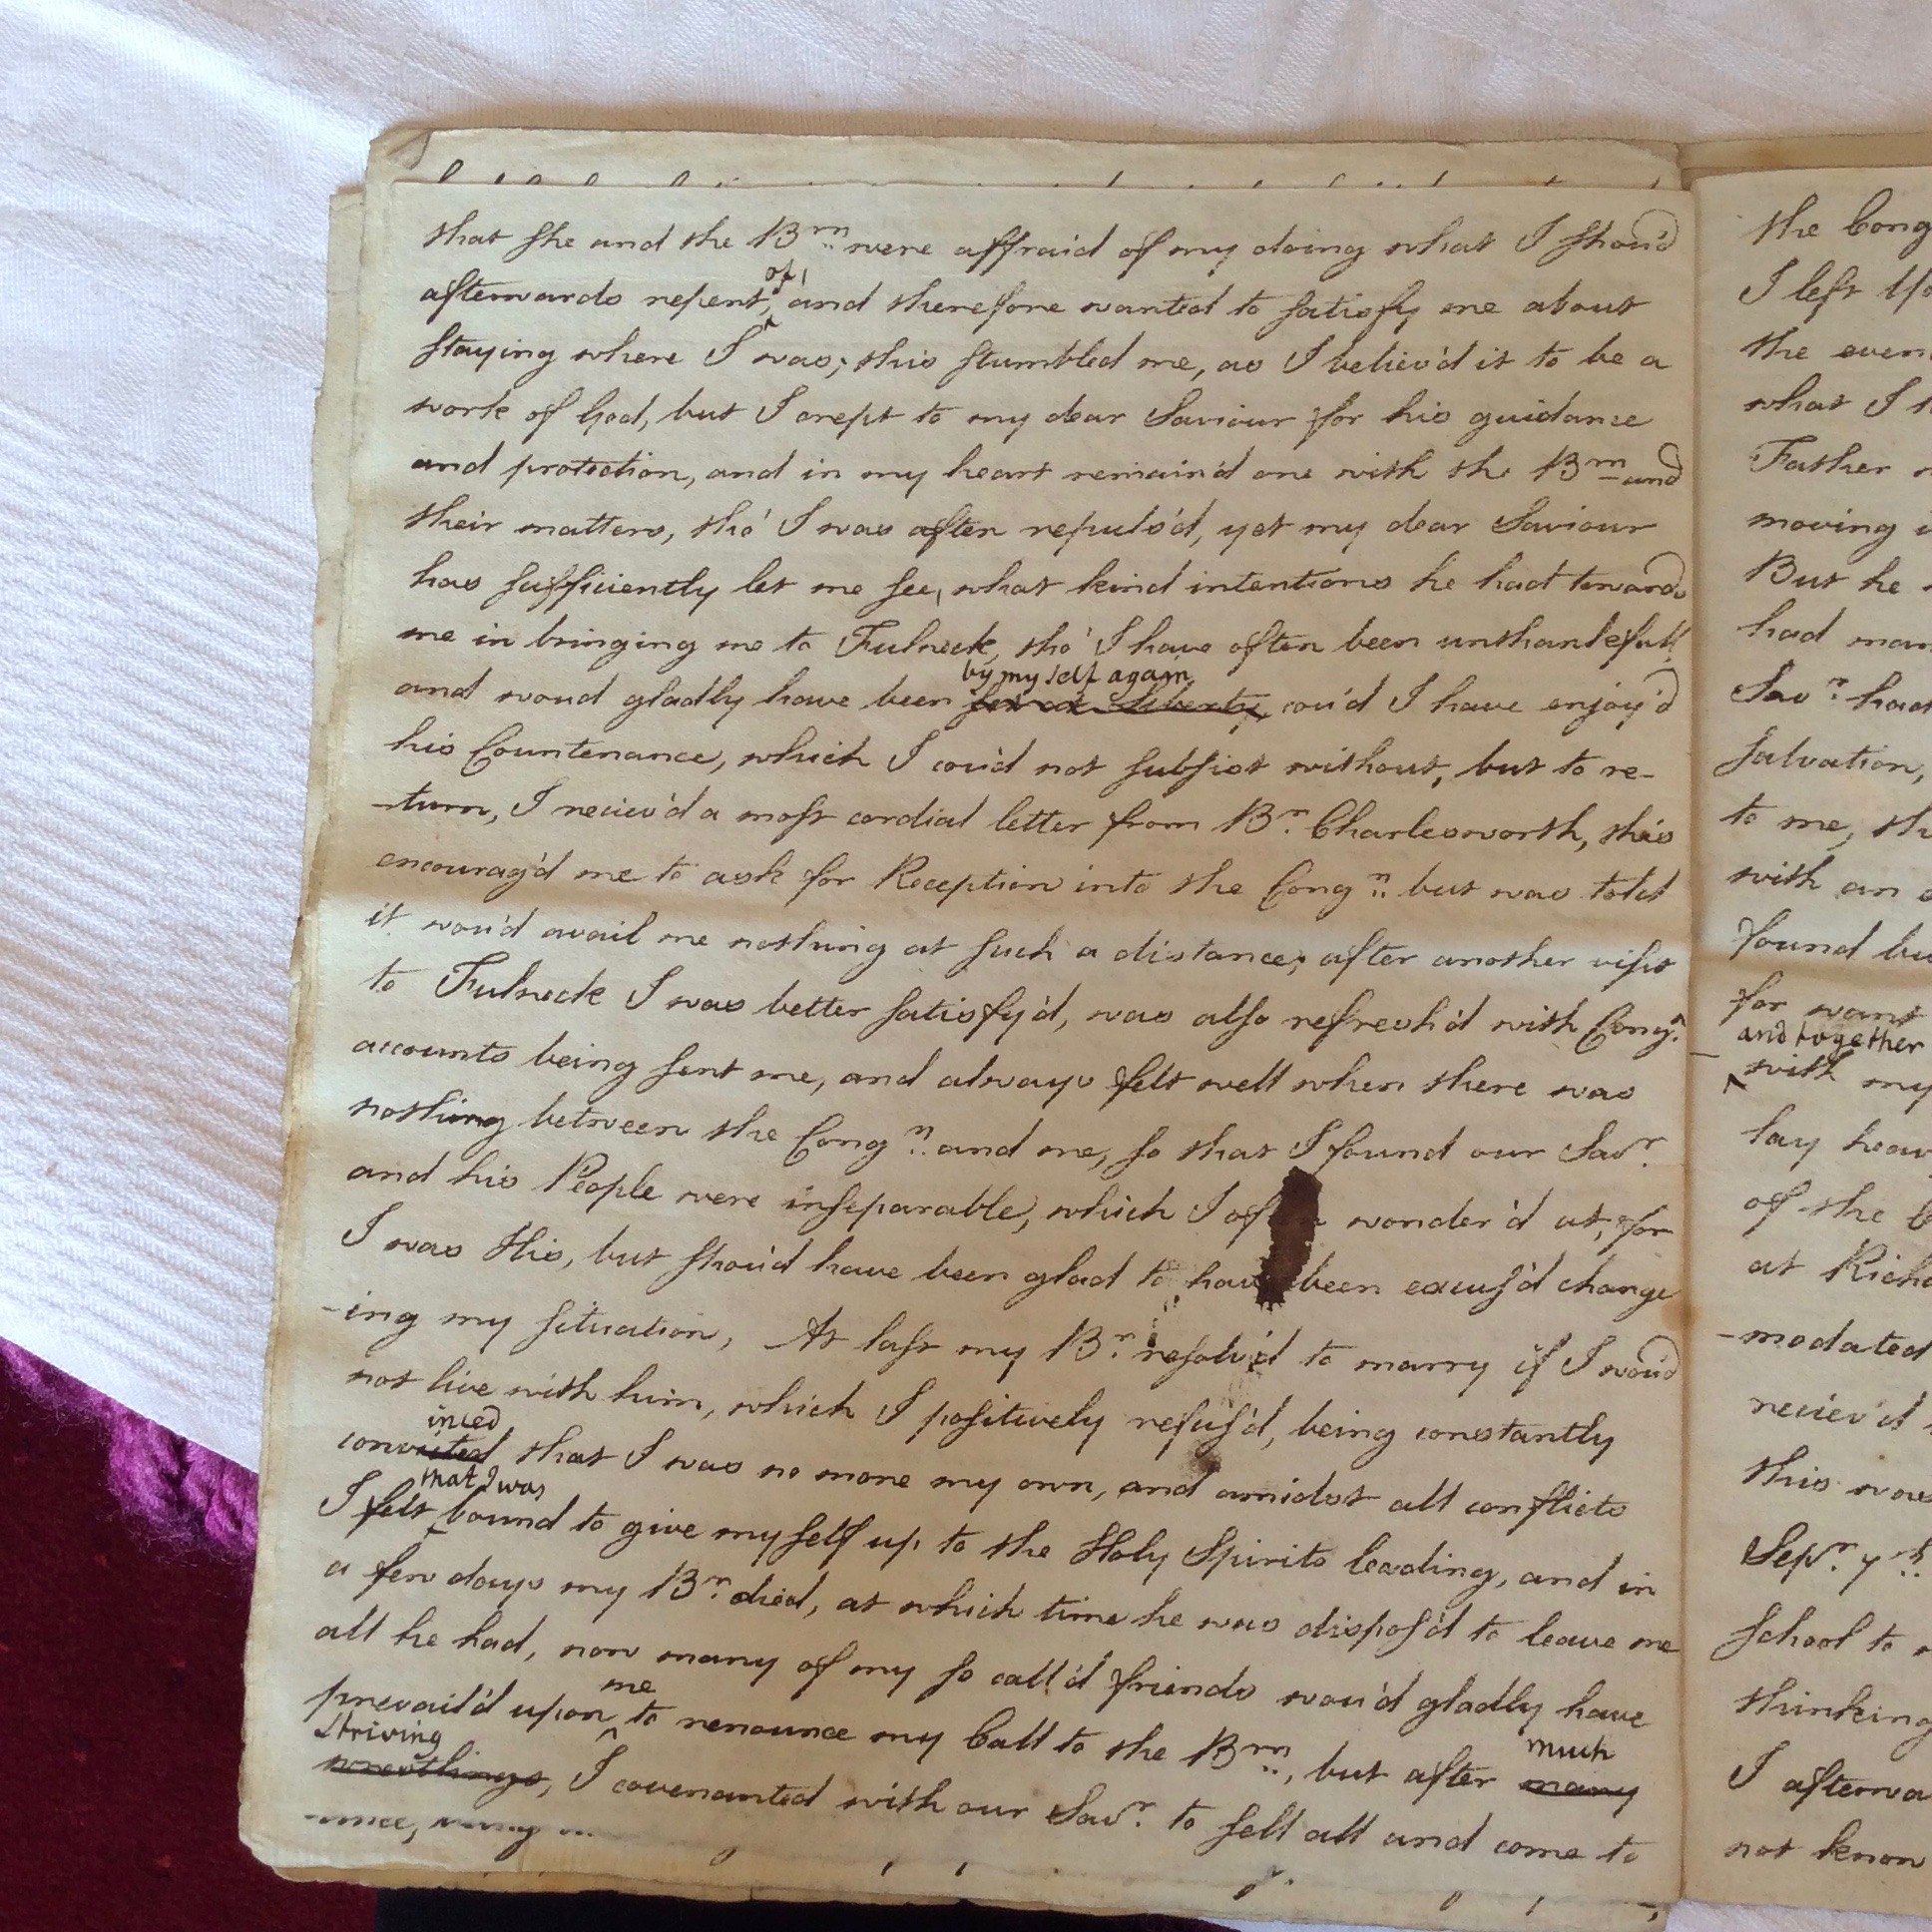 that she and the Brn were affraid of my doing what I shou'd
of
afterwards repent, and therefore wanted to satisfy me about
staying where I was; this stumbled me, as I believ'd it to be a
work of God, but I crept to my dear Saviour for his guidance
and protection, and in my heart remain'd one with the Brn and
their matters, tho' I was often repuls'd, yet my dear Saviour
has sufficiently let me see, what kind intentions he had towards
me in bringing me to Fulneck, tho' I have often been unthankfull
by my self again
and woud gladly have been set at Liberty, cou'd I have enjoy'd
his Countenance, which I cou'd not subsist without, but to re-
-turn, I reciev'd a most cordial letter from Br. Charlesworth, this
encourag'd me to ask for Reception into the Congn. but was told
it wou'd avail me nothing at such a distance; after another visit
to Fulneck I was better satisfy'd, was also refresh'd with Congn.
accounts being sent me, and always felt well when there was
nothing between the Congn. and me, so that I found our Savr.
and his People were inseparable, which I often wonder'd at, for
I was His, but shou'd have been glad to have been excus'd change
-ing my situation, At last my Br. resolv'd to marry if I wou'd
not live with him, which I positively refus'd, being constantly
inced
convicted that I was no more my own, and amidst all conflicts
that I was
I felt bound to give myself up to the Holy Spirits leading, and in
a few days my Br. died, at which time he was dispos'd to leave me
all he had, now many of my so call'd friends wou'd gladly have
me
prevail'd upon to renounce my Call to the Brn., but after many
much
striving
wrestlings, I covenanted with our Savr. to sell all and come to
the Cong
I left
the even
what I
Father
moving
But he
had man
Savr. had
salvation,
to me, th
with an
found bu
for want
and together
with my
lay heav
of the
at Rich
-modated
reciev'd
this was
Sepr. 7th.
school to
thinking
I afterwa
not know